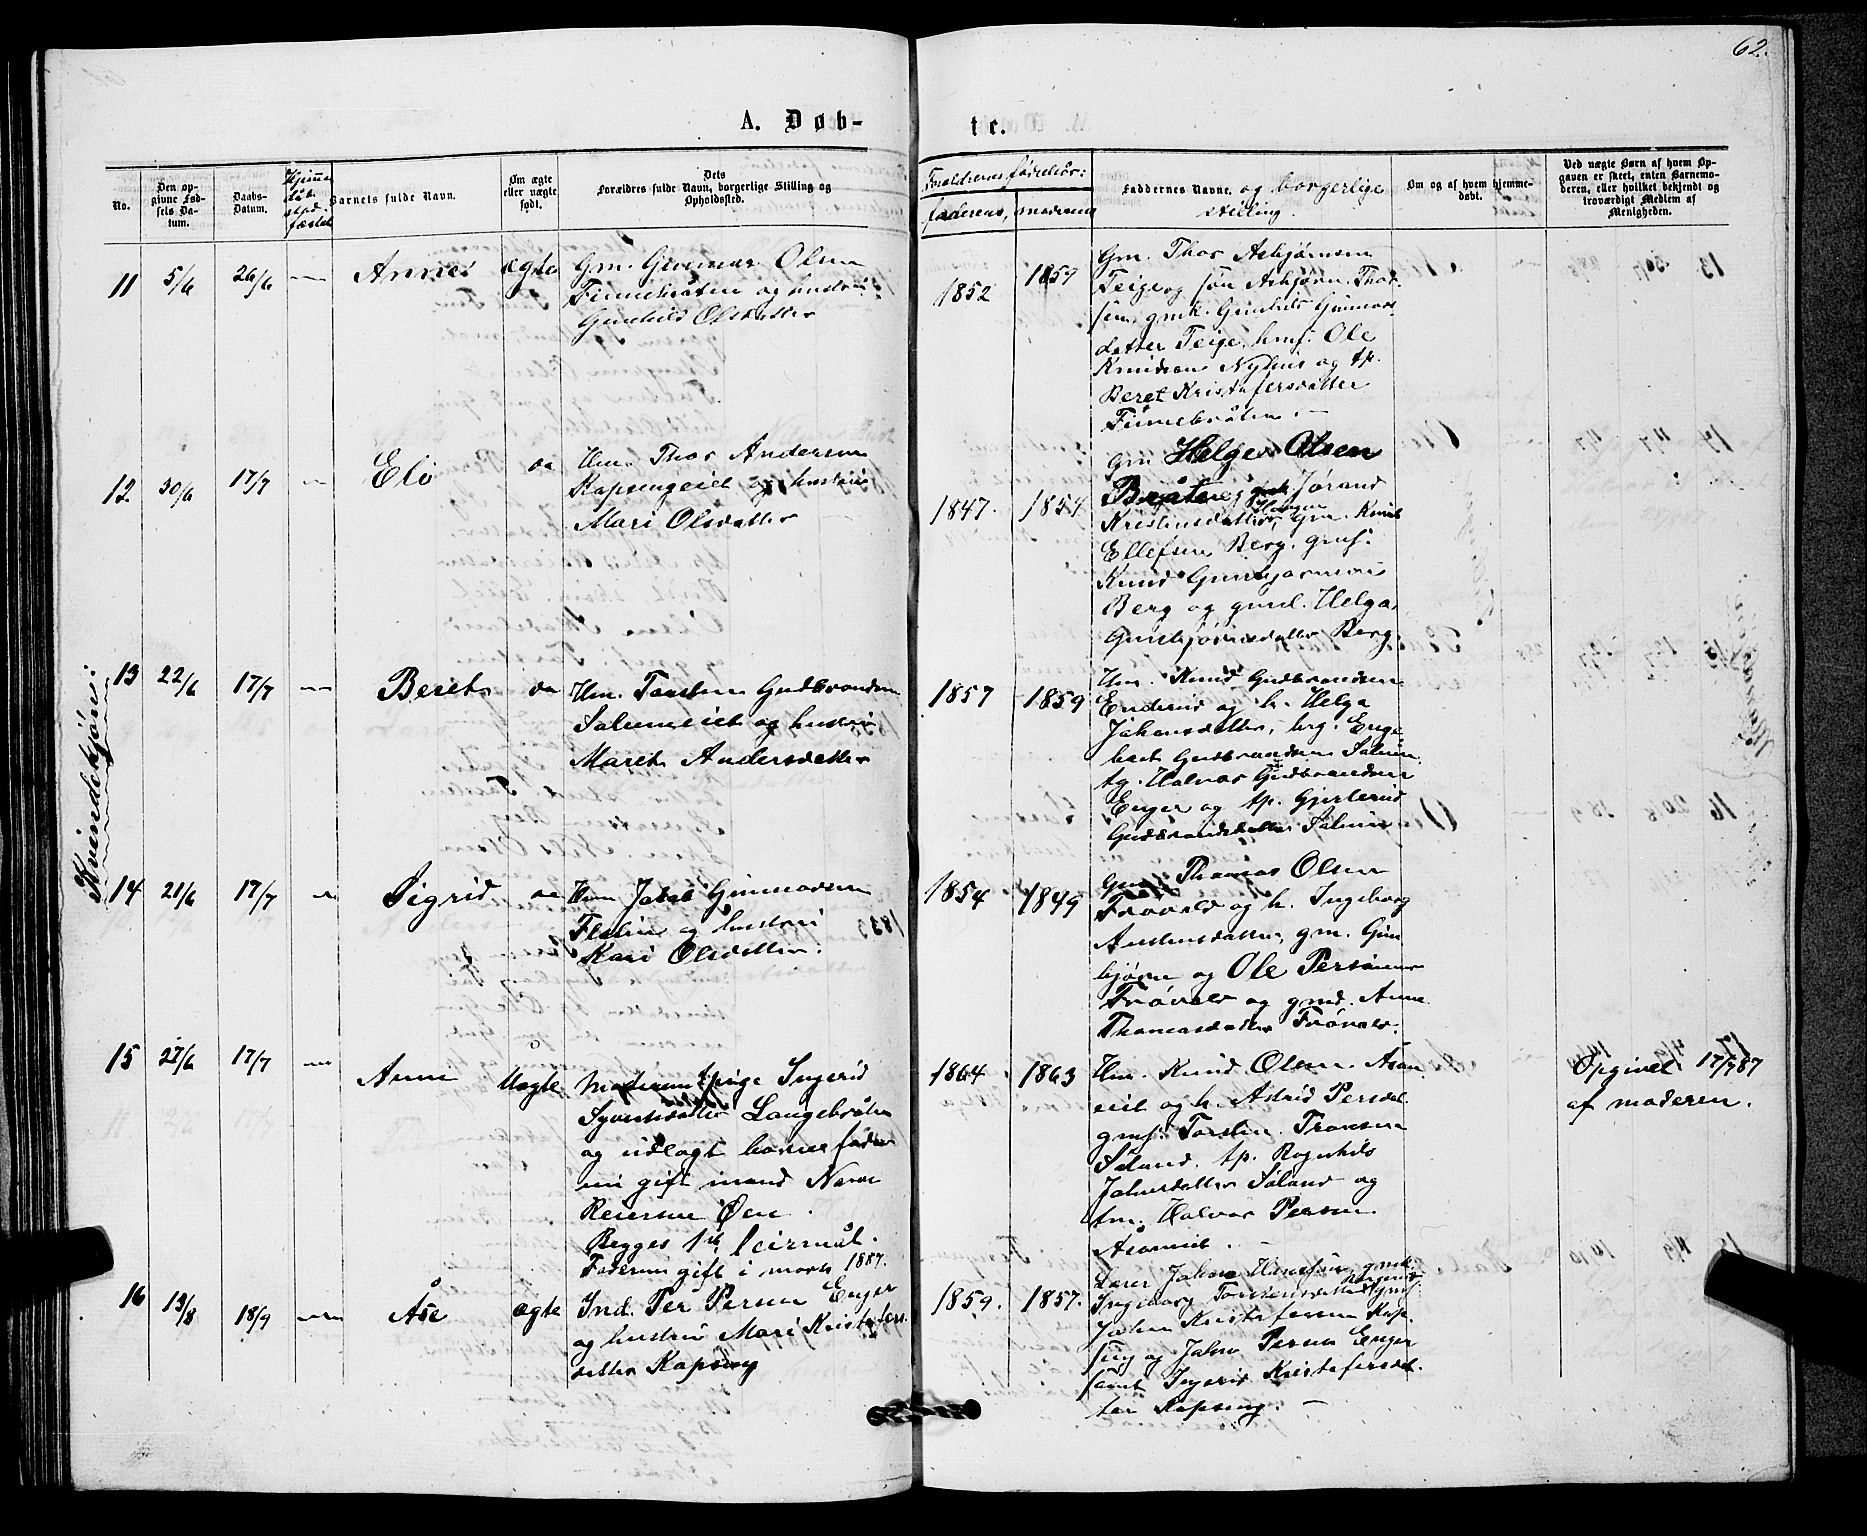 62.
A. Døb-
te.
No.
Den opgivne Fødsels Datum.
Daabs-Datum.
Barnets fulde Navn.
Om ægte eller uægte født.
Dets Forældres fulde Navn, borgerlige Stilling og Opholdssted.
Forældrenes fødselsår:
faderens, moderens
Faddernes Navne og borgerlige stilling.
Om og af hvem hjemmedøbt.
Ved uægte Børn af hvem Opgaven er skeet, enten Barnemoderen, eller hvilket bekjendt og troværdigt Medlem af Menigheden.
Kvindekjøn:
11 5/6 26/6 — Anne ægte
Gm. Gunnar Olsen
Finnebråten og hustru
Gunhild Olsdatter
1852 1859
Gm. Thor Asbjørnsen
Teige og søn Asbjørn Thor-
sen, gmk. Gunhild Gunnars
datter Teige, hmf. Ole
Knudsen Nyhus og tp.
Beret Kristofersdatter
Finnebråten. —
12 30/6 17/7 — do
Hm. Thor Andersen
Kapsingeiet og hustru
Mari Olsdatter
1847. 1854
gm Helge Olsen
Bråten, gmk Jørand
Kristensdatter Haugen, gm. Knud
Ellefsen Berg. gmf.
Knud Gunbjørnsen
Berg og gmd. Helga
Gunbjørnsdatter Berg.
13 22/6 17/7 — Beret do
Hm. Torsten Gudbrandsen
Salumeiet og hustru
Marit Andersdatter
1857 1859
Hm. Knud Gudbrandsen
Enderud og h. Helga
Johansdatter, brg. Enge
bret Gudbrandsen Salum
tg. Halvor Gudbrandsen
Enger og tp. Gjertrud
Gudbrandsdatter Salum
14 21/6 17/7 — Sigrid do
Hm Jakob Gunnarsen
Flaten og hustru
Kari Olsdatter.
1854 1849
Gm. Thomas Olsen
Frøvold og h. Ingeborg
Andersdatter, gm. Gun
bjørn og Ole Persønner
Frøvold og gmd. Anne
Thomasdatter Frøvold.
15 27/6 17/7 — Anne Uægte
Moderen pige Ingerid
Syvertsdatter Langebråten
og udlagt barnefader
en gift mand Narve
Reiersen Øen.
Begges 1ste leiermål.
Faderen gift i marts 1887.
1864 1863
Hm. Knud Olsen Åson
eiet og h. Astrid Persdat.
gmf. Torsten Tronsen
Såland. tp. Ragnhild
Johnsdatter Såland og
tm. Halvor Persen
Åsoneiet. —
Opgivet 17/7 87
af moderen.
16 13/8 18/9 — Åse ægte
Ind. Per Persen Enger
og hustru Mari Kristofers
datter Kapsing
1859. 1857.
Lærer Johan Hansen, gmk
Ingeborg Torstensdatter, gmf.
Johan Kristofersen Kap
sing og John Persen Enger
samt Ingerid Kristofersdat
ter Kapsing. —